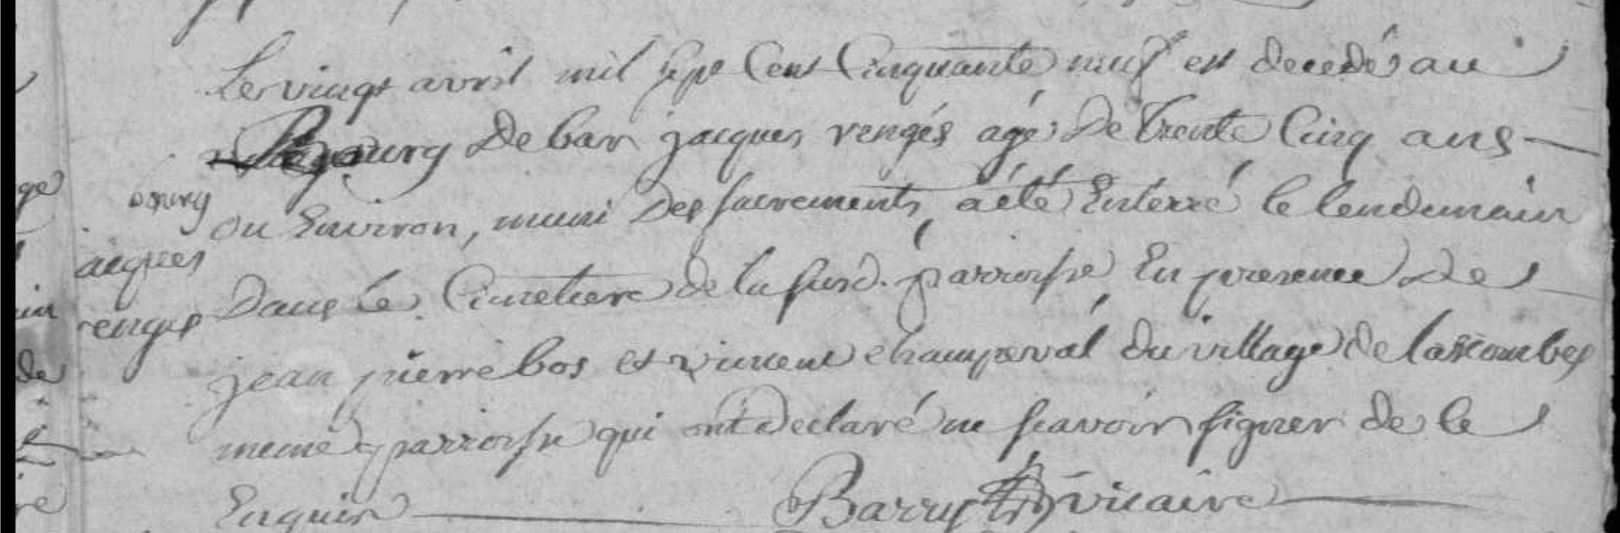 Le vingt avril mil sept Cent Cinquante neuf est decedés au
Bourg De bar jacques vengés agé De trente Cinq ans
bourg
ou Environ, muni Des sacrements, a été Enterré le lendemain
jacques
Dans le Cimetiere de la susd. parroisse En presence De
vengés
jean pierre bos et vincent champeval du village de lascombes
meme parroisse qui ont declaré ne scavoir signer de ce
Enquis Barry vicaire